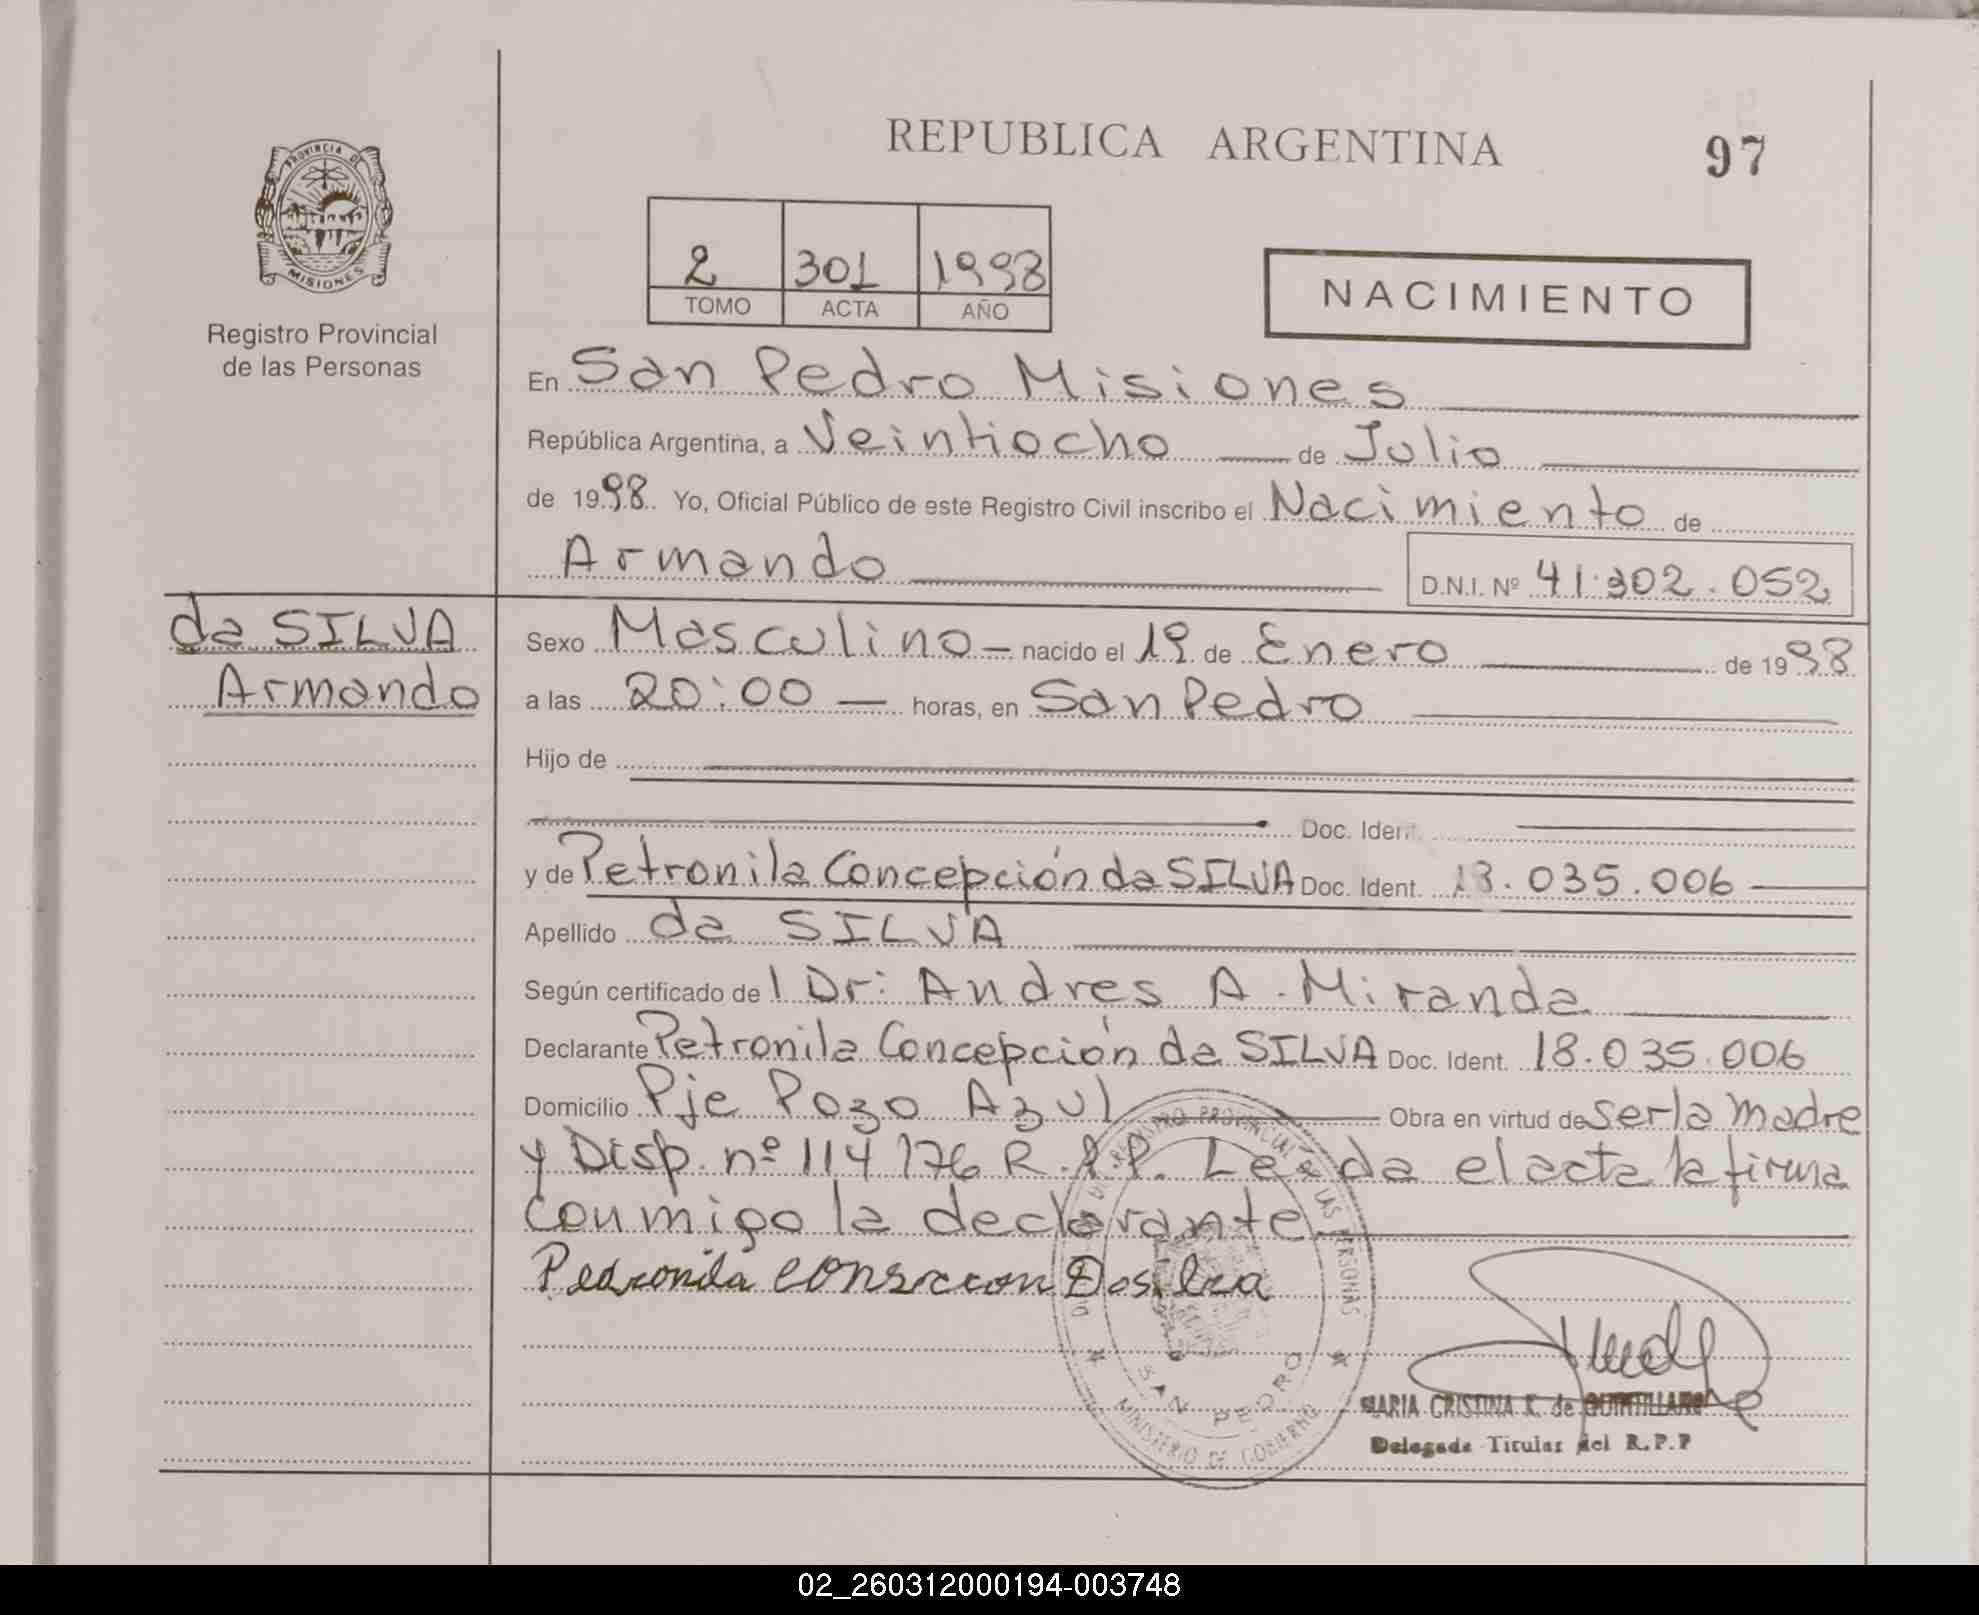 REPUBLICA ARGENTINA
97
PROVINCIA DE
MISIONES
Registro Provincial
de las Personas
2 301 1998
TOMO ACTA AÑO
NACIMIENTO
En San Pedro Misiones
República Argentina, a Veintiocho de Julio
de 1998. Yo, Oficial Público de este Registro Civil inscribo el Nacimiento de
Armando
D.N.I. Nº 41.302.052
da SILVA
Armando
Sexo Masculino nacido el 19 de Enero de 1998
a las 20:00 horas, en San Pedro
Hijo de
Doc. Ident.
y de Petronila Concepción da SILVA Doc. Ident. 18.035.006
Apellido da SILVA
Según certificado del Dr: Andres A. Miranda
Declarante Petronila Concepción da SILVA Doc. Ident. 18.035.006
Domicilio Pje Pozo Azul Obra en virtud de ser la madre
y Disp. nº 114/76 R.P.P. Leída el acta la firma
conmigo la declarante
Pedronila Dasilva
REGISTRO PROVINCIAL DE LAS PERSONAS
SAN PEDRO
MINISTERIO DE GOBIERNO
MARIA CRISTINA K. de QUINTILLANO
Delegada Titular del R.P.P
02_260312000194-003748